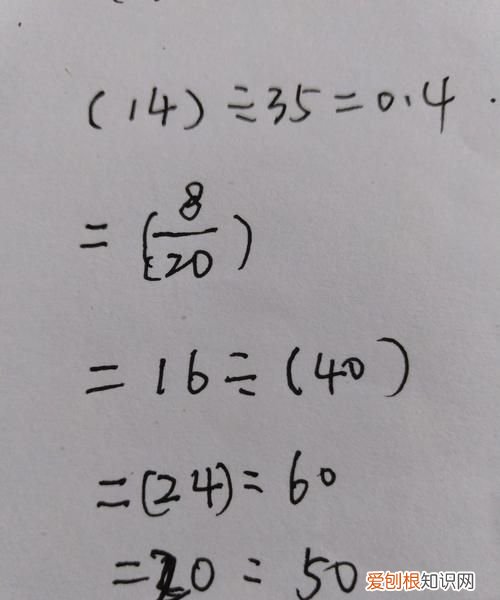 (14)÷35=0.4
=(8/20)
=16÷(40)
=(24)=60
=20=50
爱刨根知识网